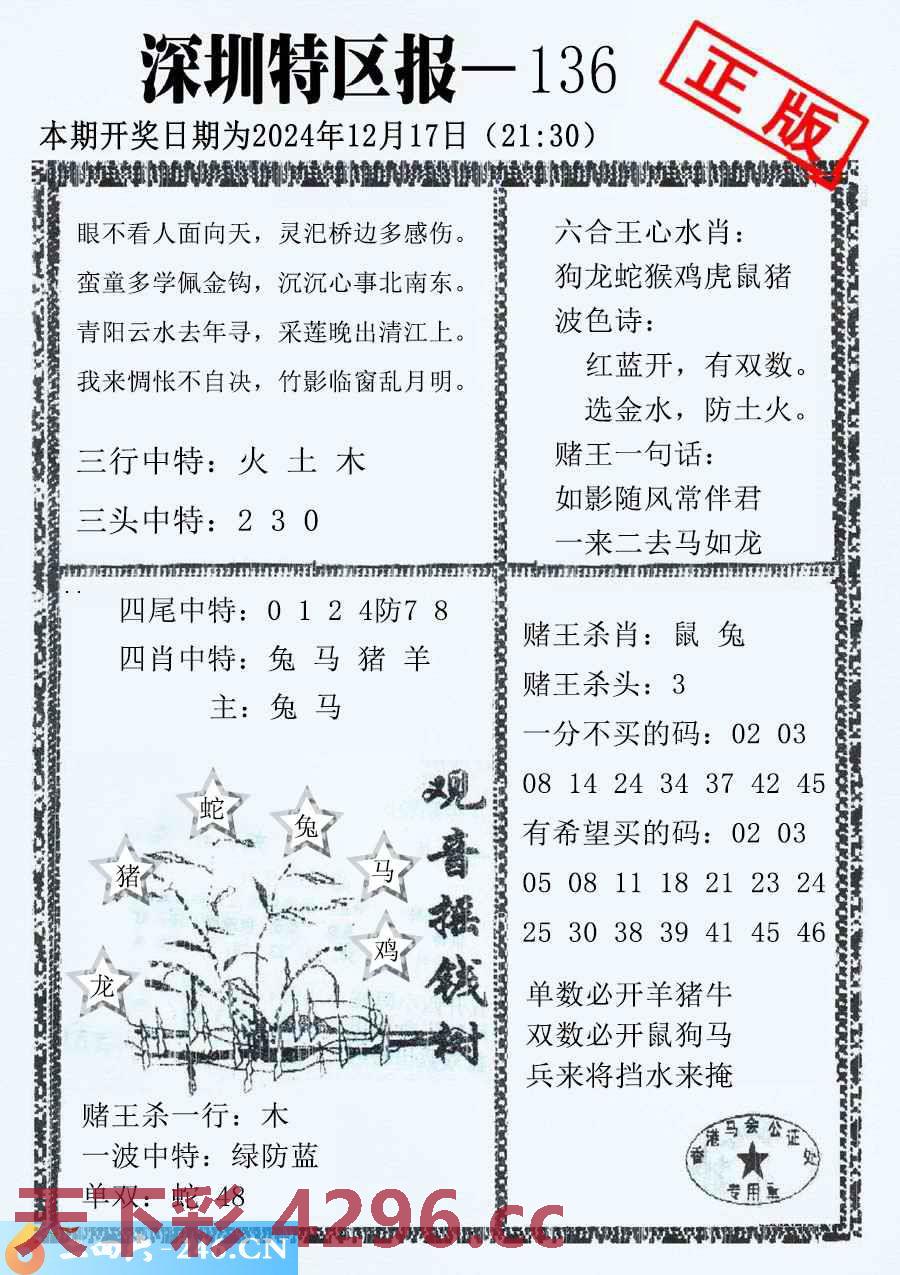 深圳特区报—136
正版
本期开奖日期为2024年12月17日（21:30）
眼不看人面向天，灵汜桥边多感伤。
蛮童多学佩金钩，沉沉心事北南东。
青阳云水去年寻，采莲晚出清江上。
我来惆怅不自决，竹影临窗乱月明。
三行中特：火 土 木
三头中特：2 3 0
六合王心水肖：
狗龙蛇猴鸡虎鼠猪
波色诗：
红蓝开，有双数。
选金水，防土火。
赌王一句话：
如影随风常伴君
一来二去马如龙
四尾中特：0 1 2 4防7 8
四肖中特：兔 马 猪 羊
主：兔 马
蛇
兔
猪
马
鸡
龙
观音摇钱树
赌王杀一行：木
一波中特：绿防蓝
单双：蛇 48
赌王杀肖：鼠 兔
赌王杀头：3
一分不买的码：02 03
08 14 24 34 37 42 45
有希望买的码：02 03
05 08 11 18 21 23 24
25 30 38 39 41 45 46
单数必开羊猪牛
双数必开鼠狗马
兵来将挡水来掩
香港马会公证处
专用章
天下彩 4296.cc
-246.CN